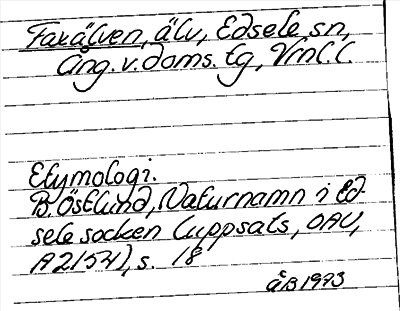 Faxälven, älv, Edsele sn,
Ång. v. doms. tg, Vrnl. l.
Etymologi.
B. Östlund, Naturnamn i Ed-
sele socken (uppsats, OAU,
A2154), s. 18
ÅB 1973